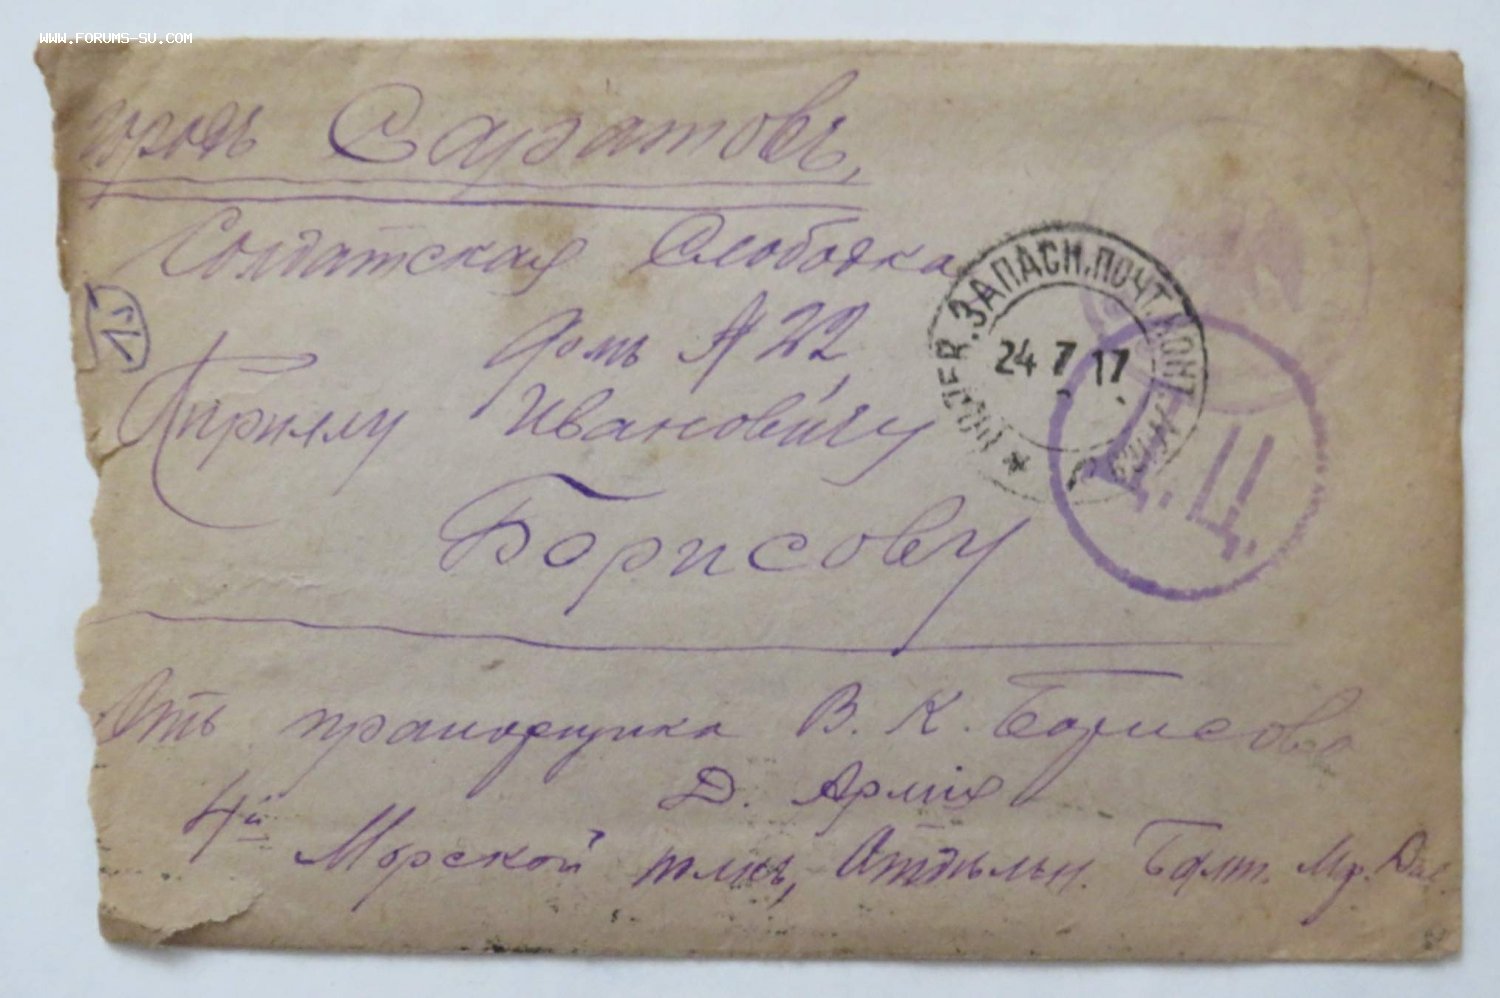 WWW.FORUMS-SU.COM
городъ Саратовъ,
Солдатская Слободка
домъ № 22
Кириллу Ивановичу
Борисову
15
ПОЛЕВ. ЗАПАСН. ПОЧТ. КОНТ.
24 7 17
Д. Ц.
Отъ прапорщика В. К. Борисова
Д. Армія
4й Морской полкъ, Отдѣльн. Балт. Мр. Див.